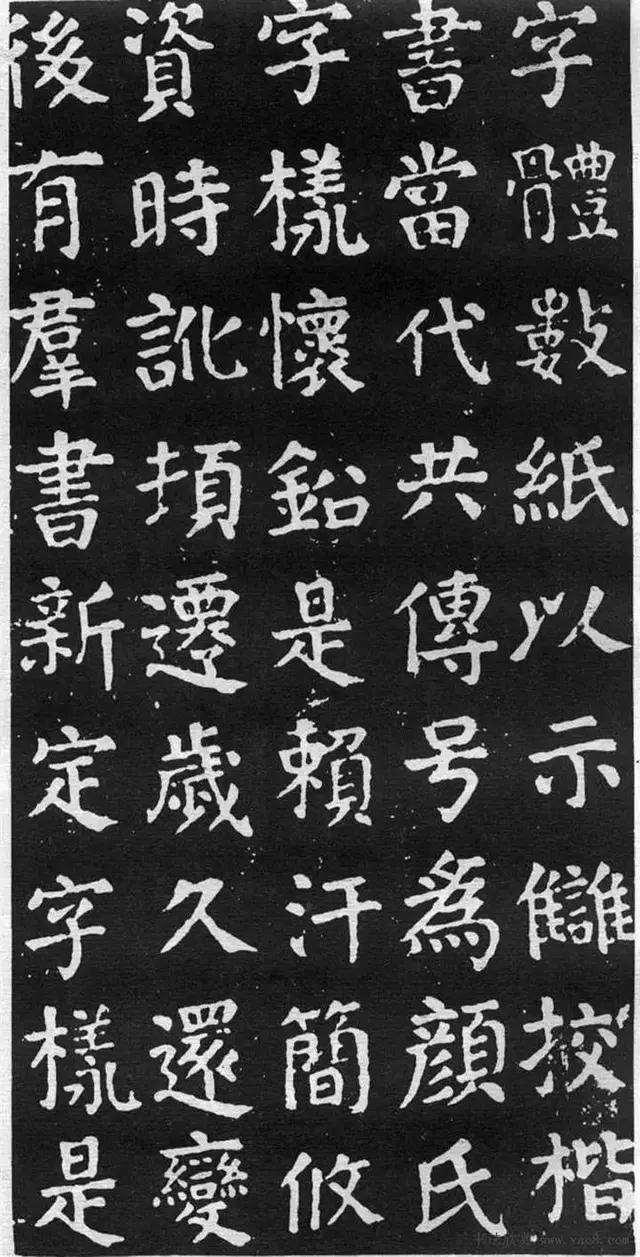 字體數紙以示讎挍楷
書當代共傳号為顏氏
字樣懷鉛是賴汗簡攸
資時訛頓遷歲久還變
後有羣書新定字樣是
www.yac8.com